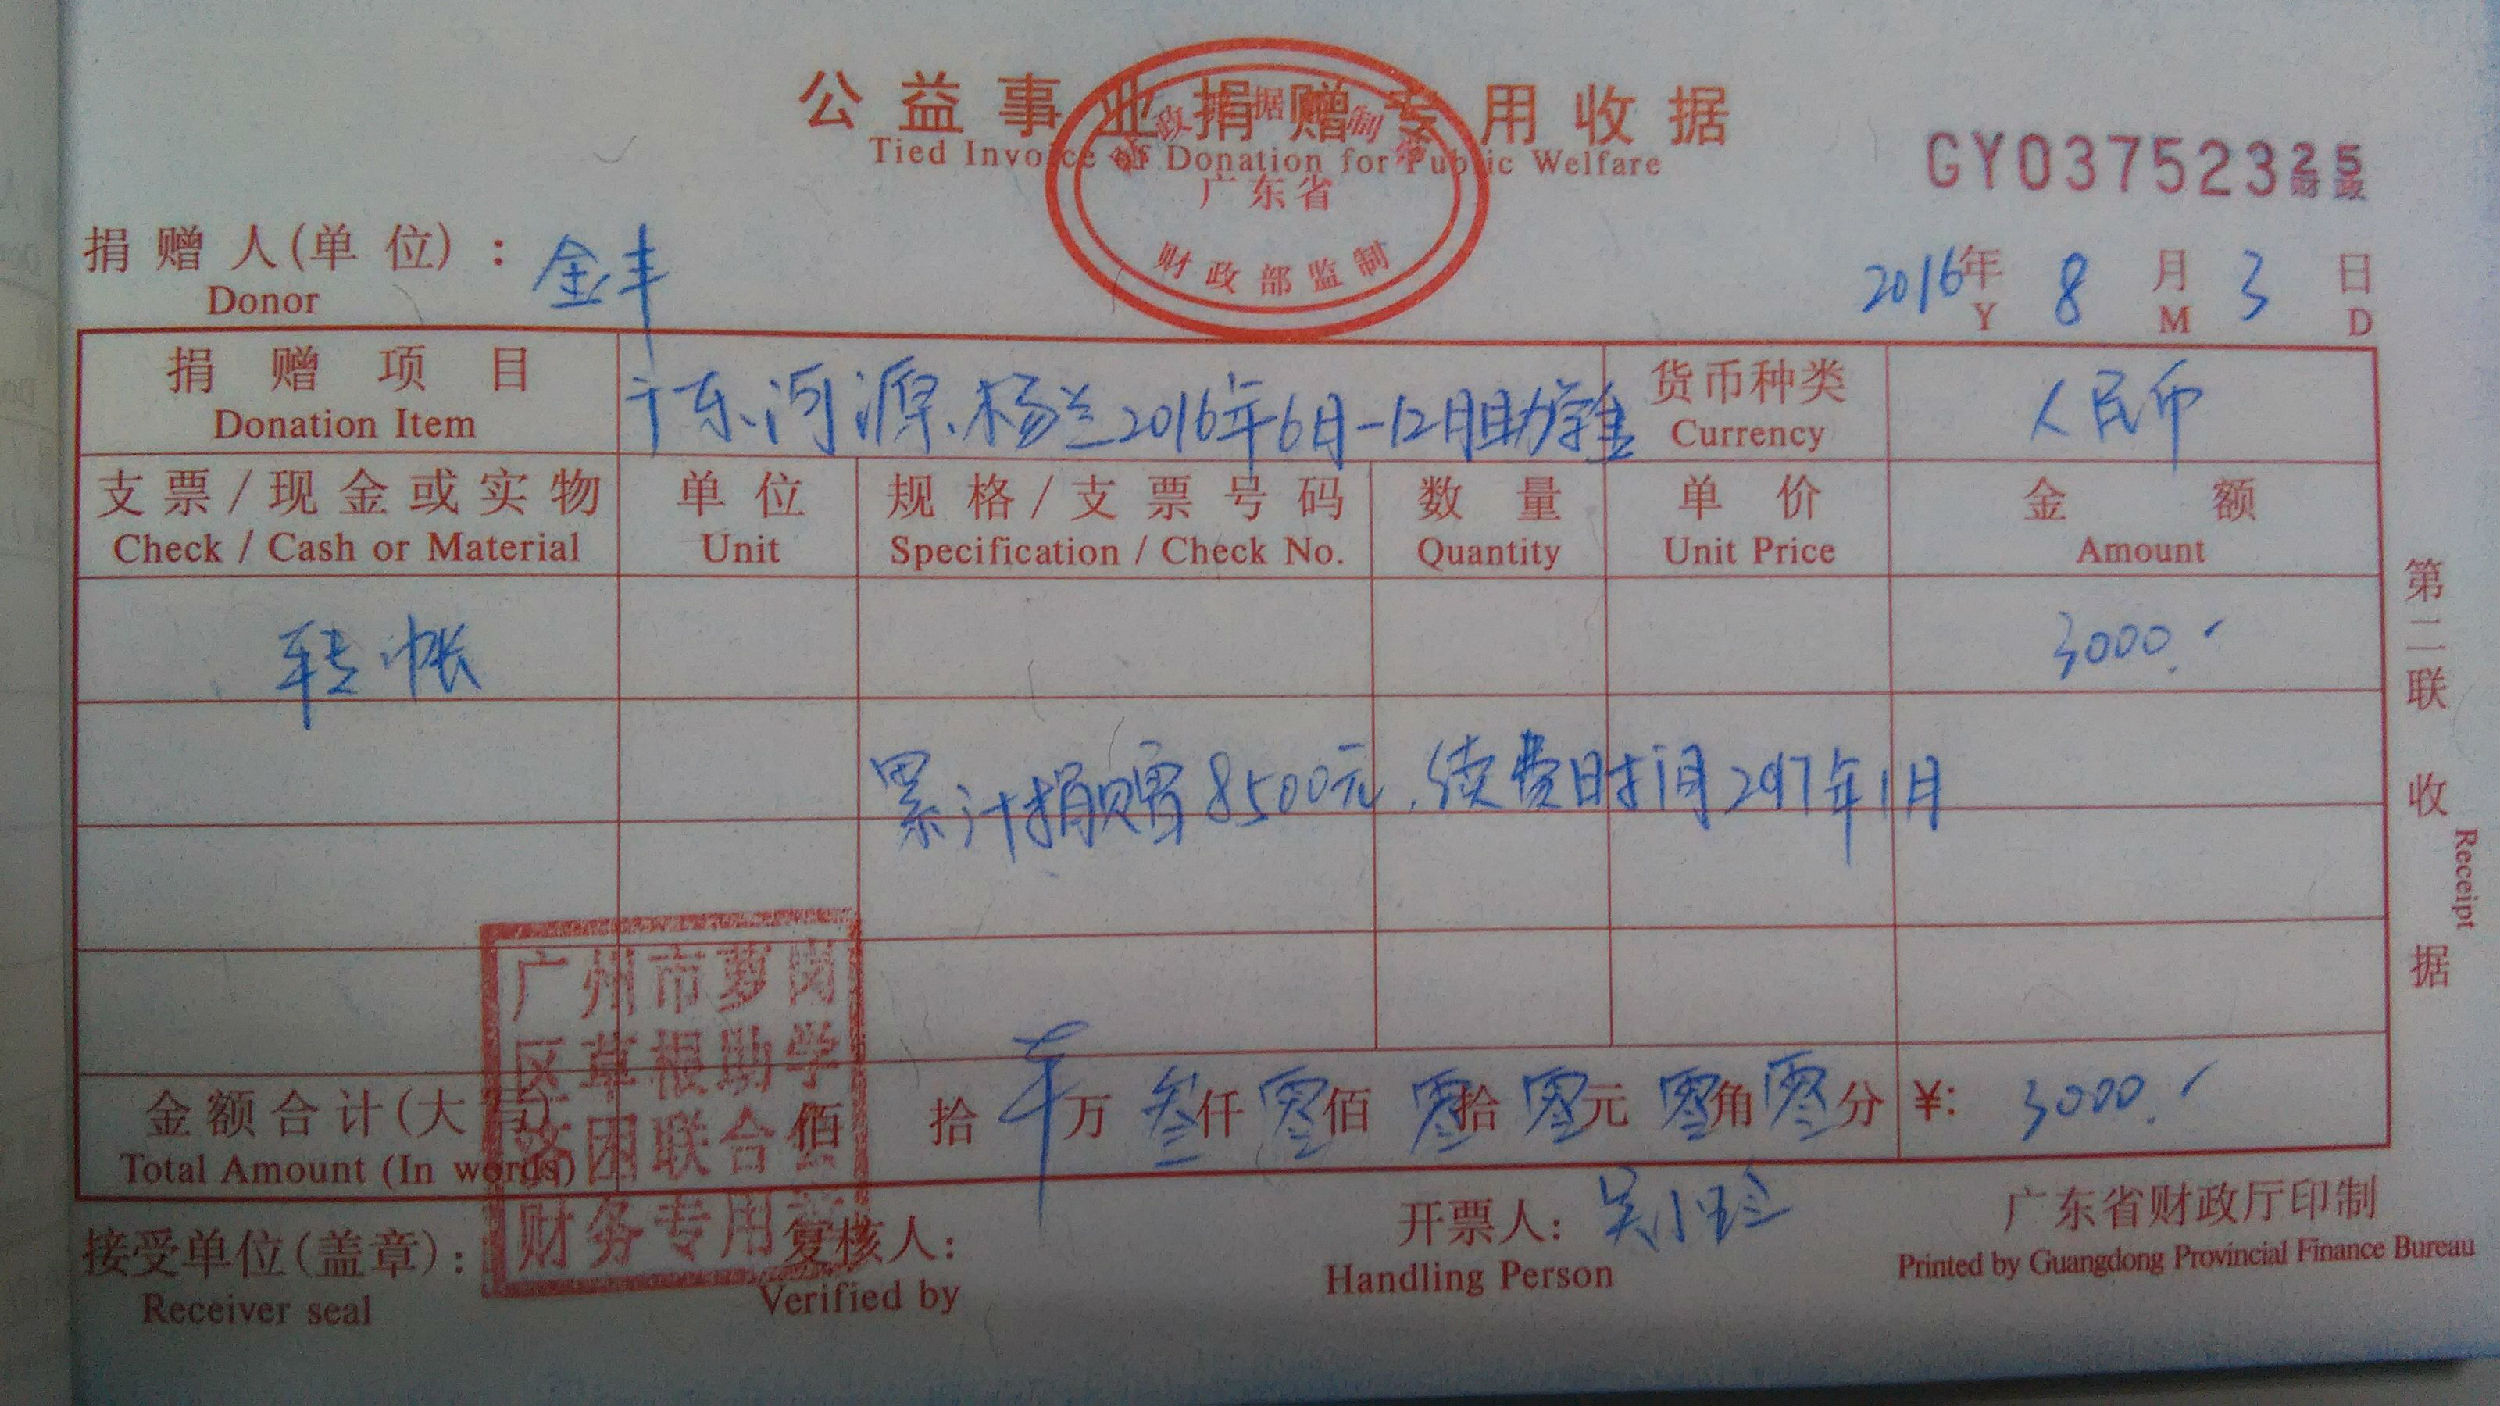 公益事业捐赠专用收据
Tied Invoice of Donation for Public Welfare
广东省
财政部监制
GY03752325
财政
捐赠人(单位)：金丰
Donor
2016年8月3日
Y M D
捐赠项目 广东、河源、杨兰2016年6月-12月助学金 货币种类 人民币
Donation Item Currency
支票/现金或实物 单位 规格/支票号码 数量 单价 金额
Check / Cash or Material Unit Specification / Check No. Quantity Unit Price Amount
转帐 3000.-
累计捐赠8500元、续费时间2017年1月
金额合计(大写) 佰 拾 万 叁仟 零佰 零拾 零元 零角 零分 ¥: 3000.-
Total Amount (In words)
广州市萝岗
区草根助学
济困联合会
财务专用章
接受单位(盖章)： 复核人： 开票人： 吴小 广东省财政厅印制
Receiver seal Verified by Handling Person Printed by Guangdong Provincial Finance Bureau
第二联 收据
Receipt